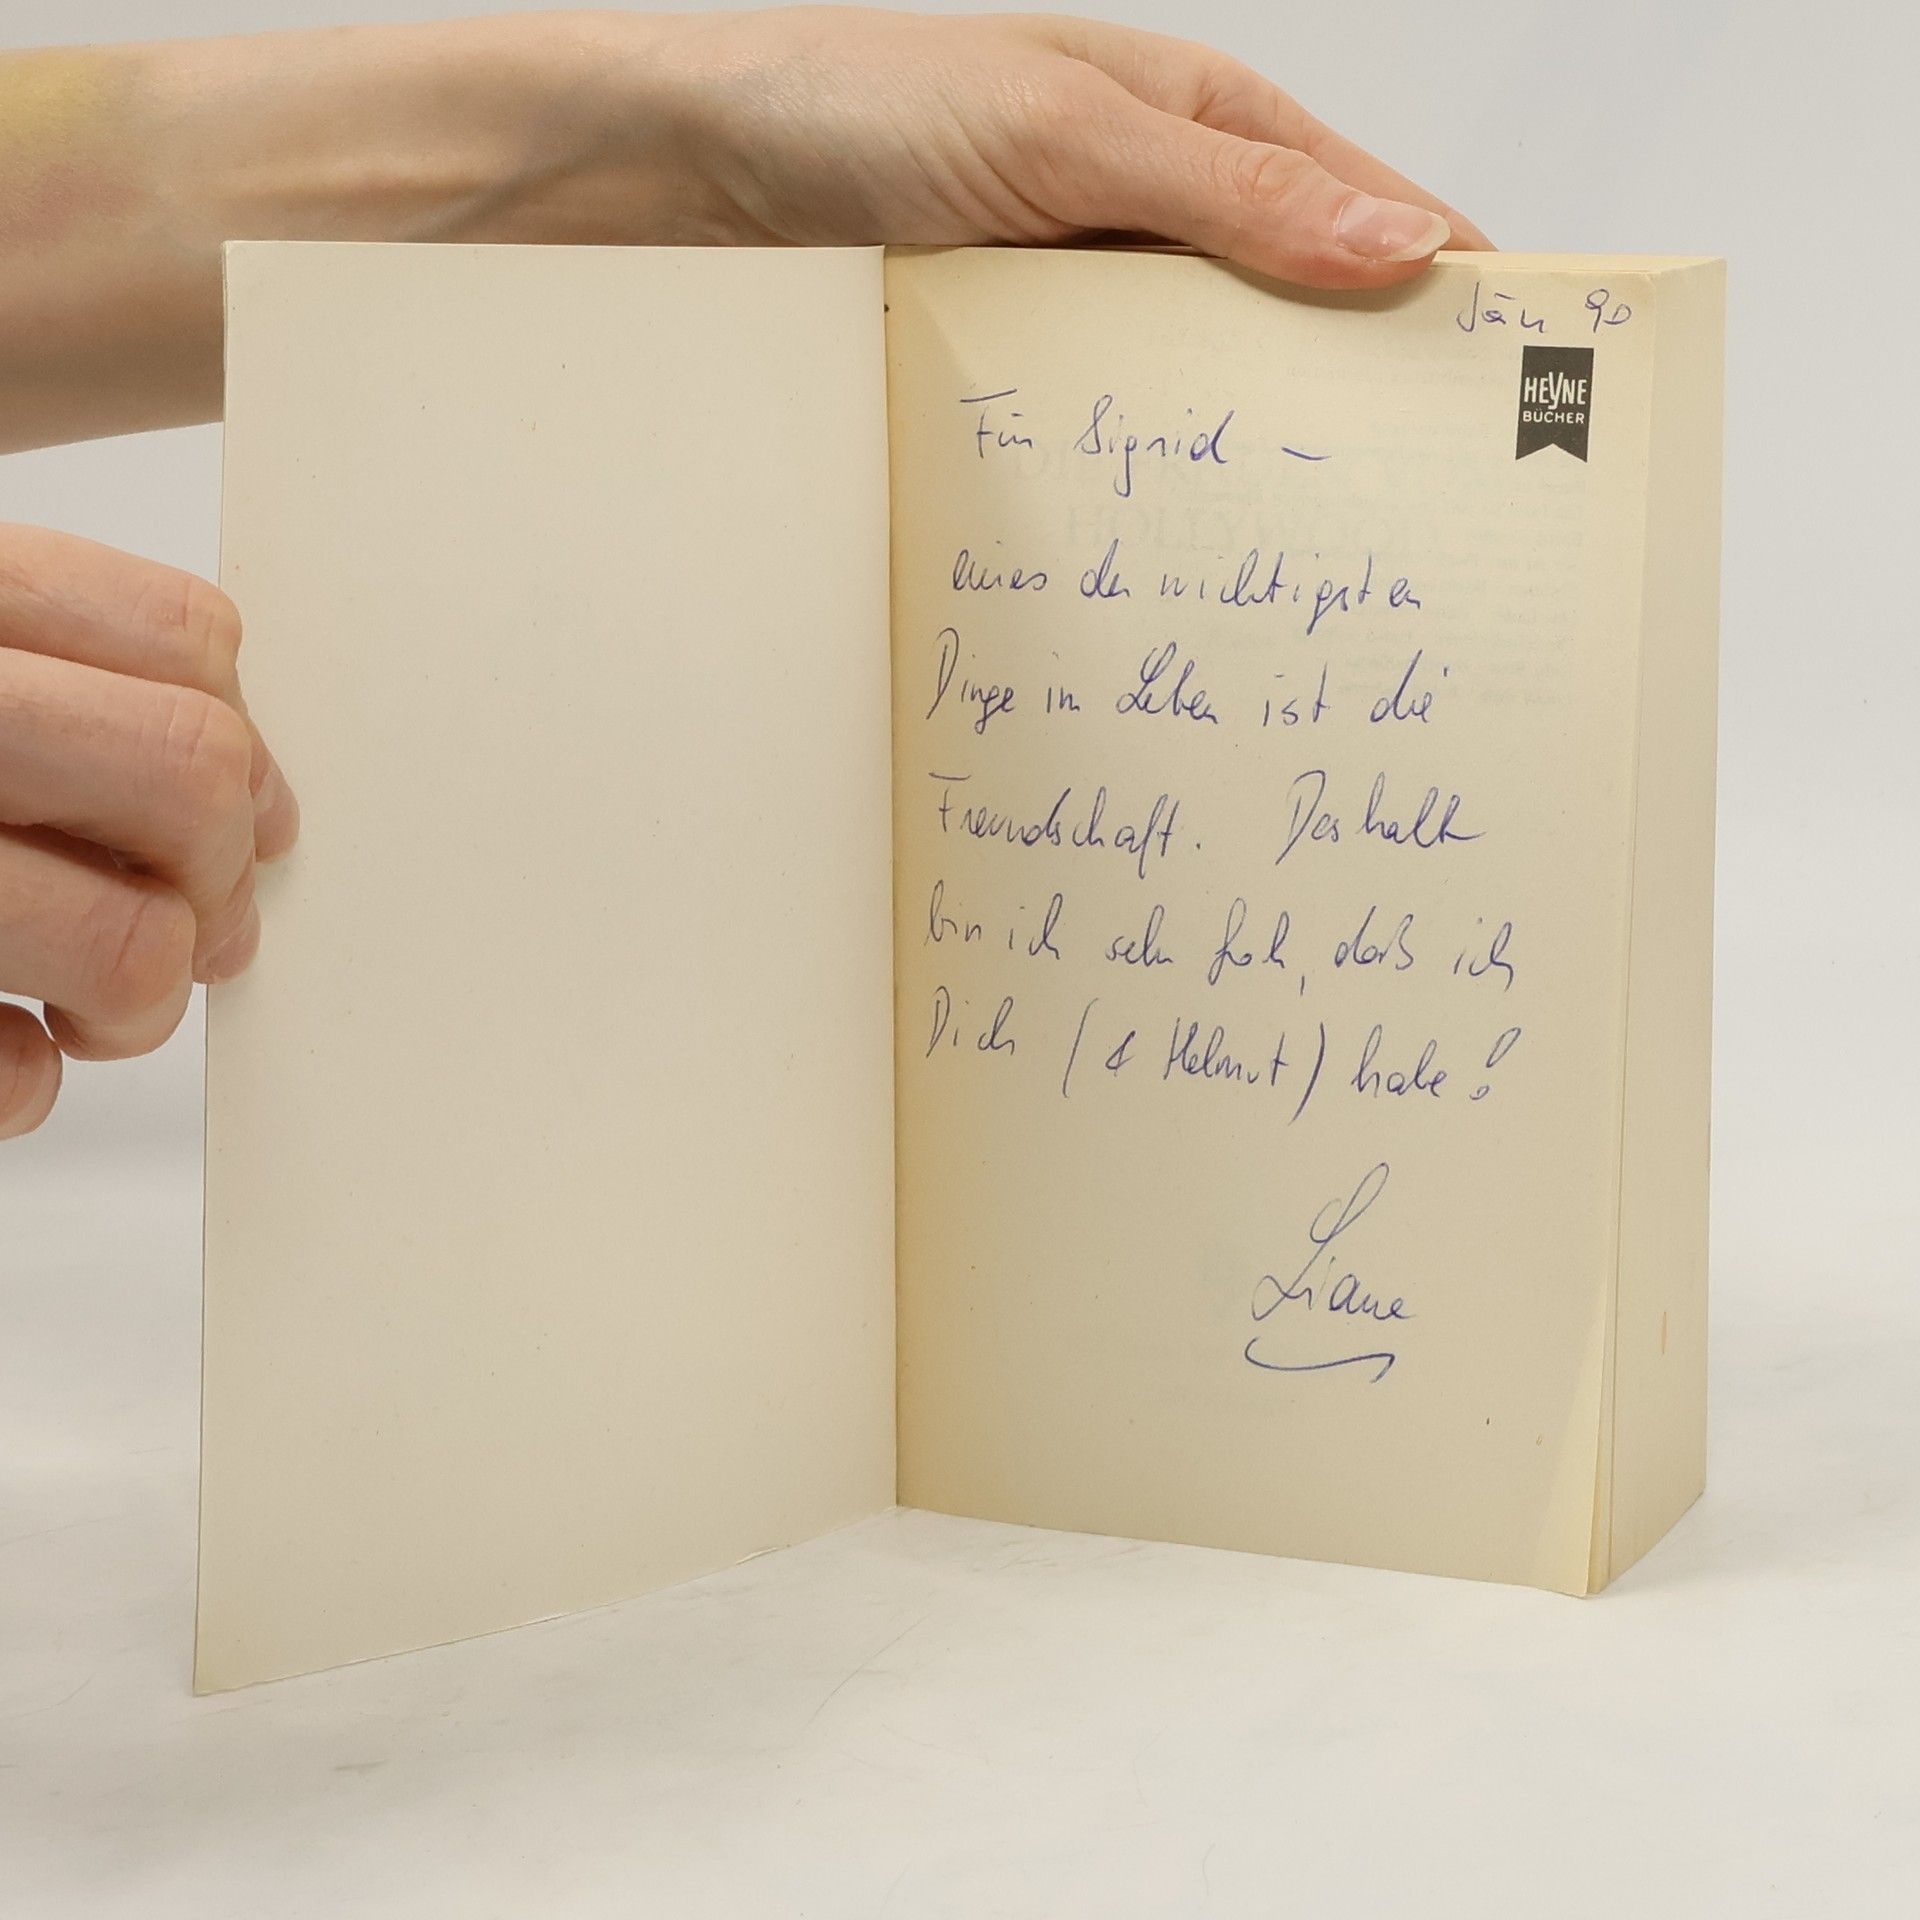 Jän 90
HEYNE
BÜCHER
Für Sigrid –
eines der wichtigsten
Dinge im Leben ist die
Freundschaft. Deshalb
bin ich sehr froh, daß ich
Dich (& Helmut) habe!
Liane